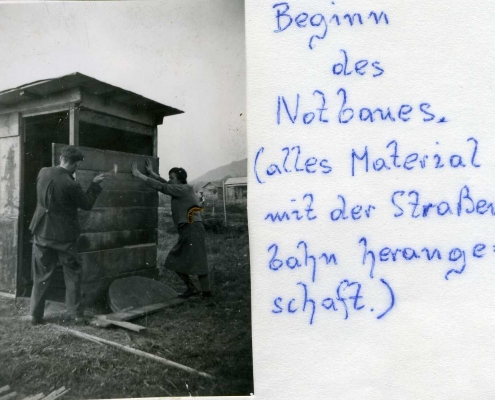 Beginn
des
Notbaues.
(alles Material
mit der Straßen
bahn herange=
schaft.)